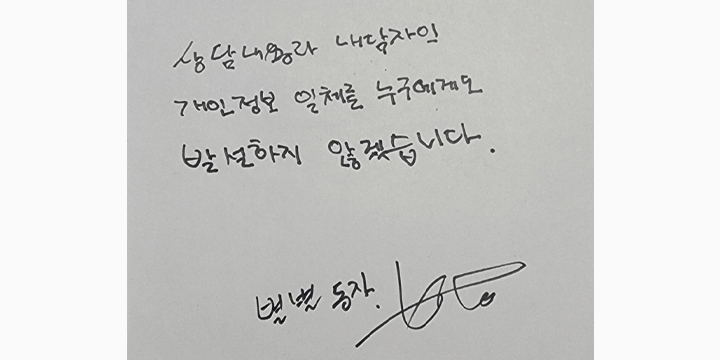 상담내용과 내담자의
개인정보 일체를 누구에게도
발설하지 않겠습니다.
별별 동자.